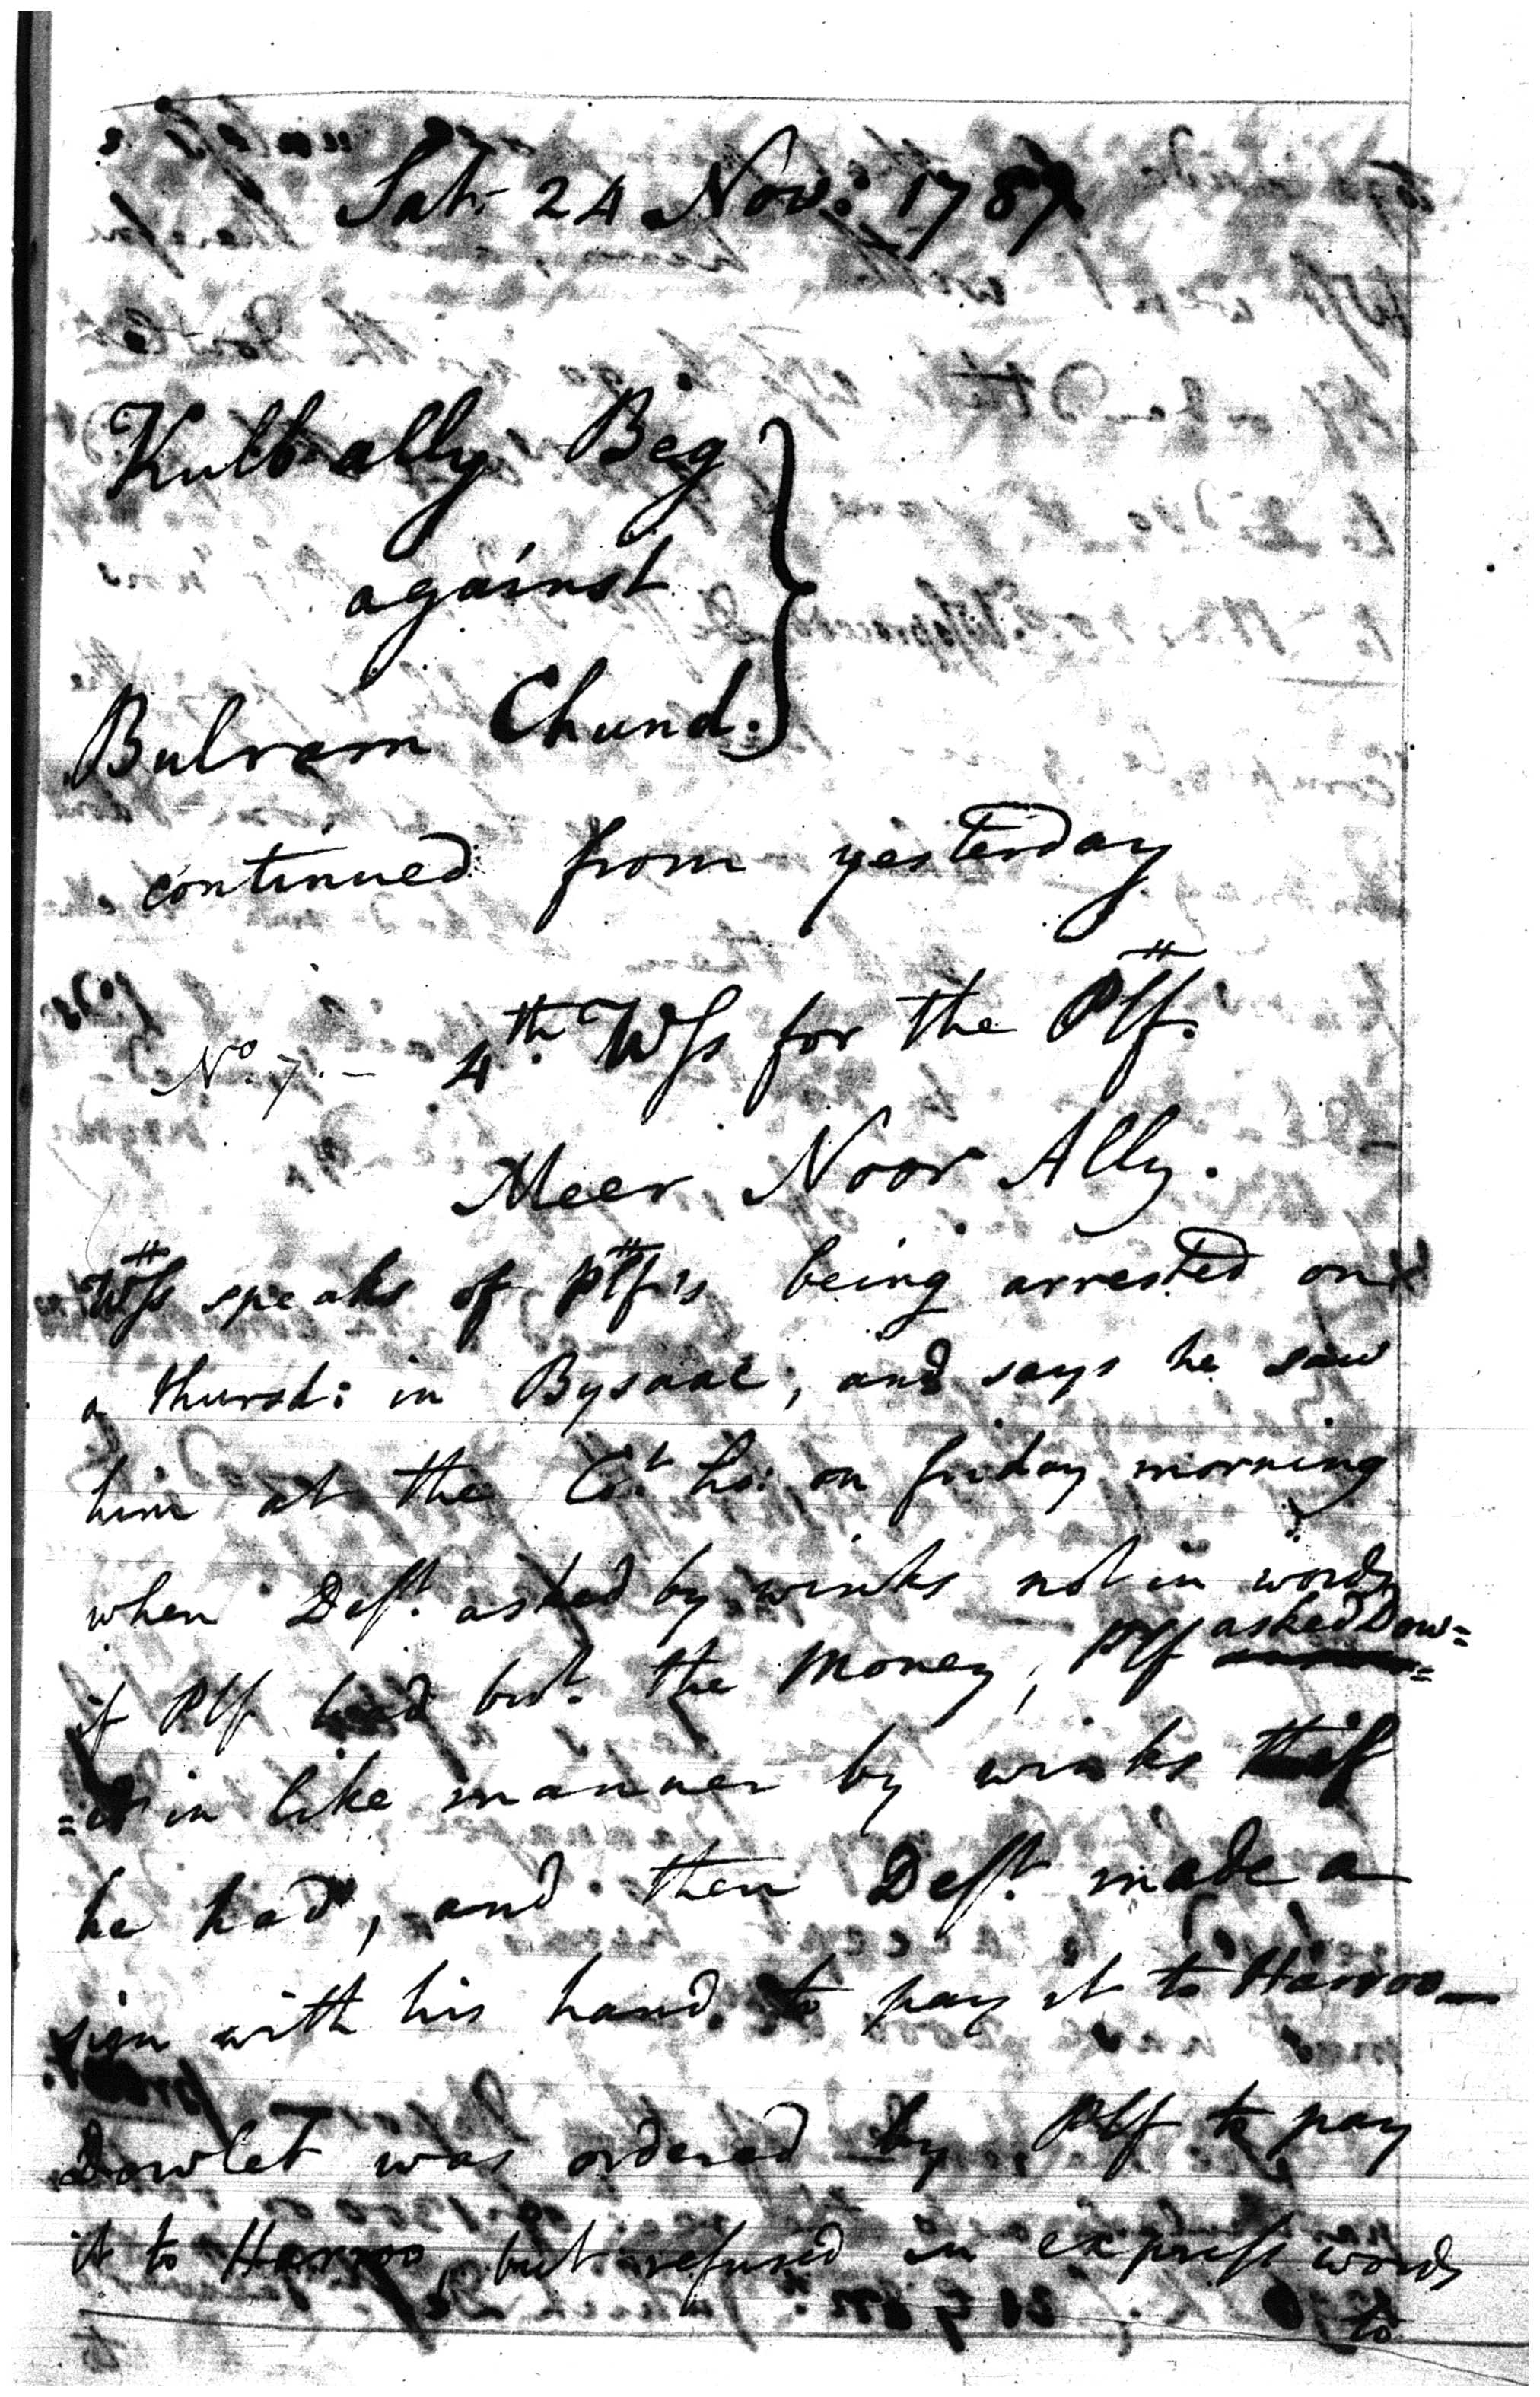 Sat. 24 Nov: 1787
Kulb ally Beg
against
Bulram Chund.
continued from yesterday
No. 7. - 4th. Wss for the Plf.
Meer Noor Ally.
Wss speaks of Plf's being arrested on
a thursd: in Bysaac, and says he saw
him at the Ct. ho: on friday morning
when Deft. asked by winks not in words
if Plf had brt. the money, Plf asked Dow=
=let in like manner by winks if
he had, and then Deft. made a
sign with his hand to pay it to Harroo_
Dowlet was ordered by Plf to pay
it to Harroo but refused in express words
to